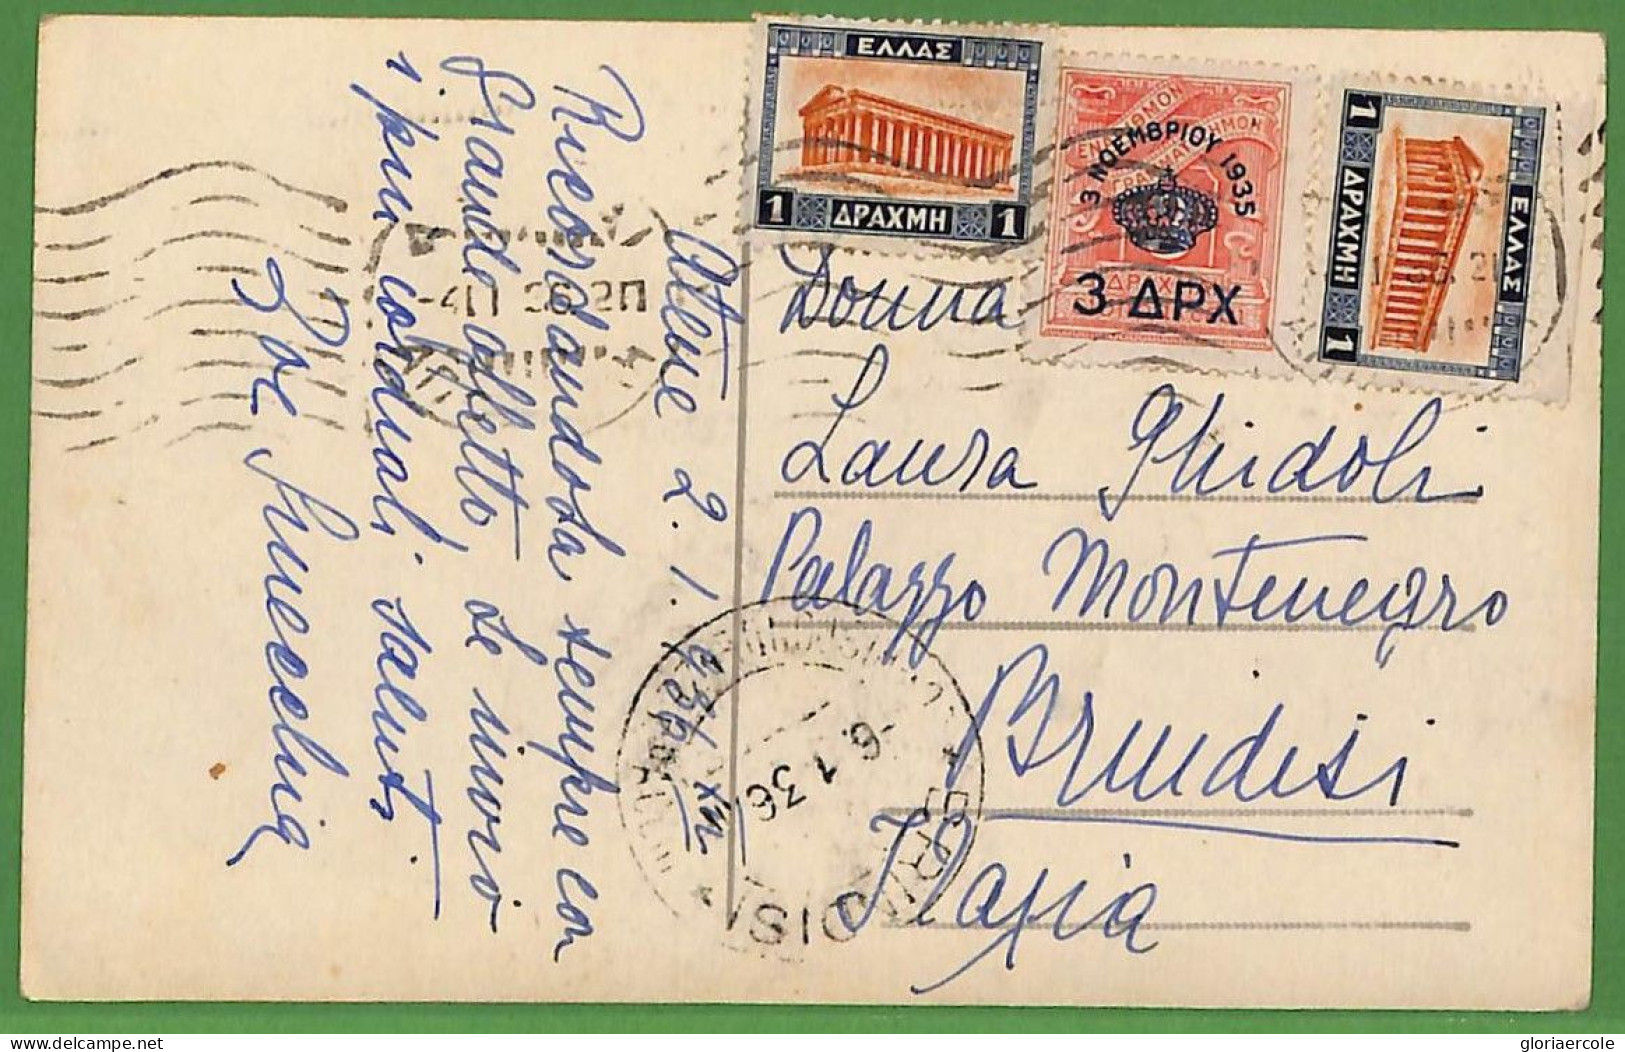 ΕΛΛΑΣ
1 ΔΡΑΧΜΗ 1
3 ΝΟΕΜΒΡΙΟΥ 1935
3 ΔΡΧ
ΕΛΛΑΣ
1 ΔΡΑΧΜΗ 1
Atene 2. 1.
Ricordandola sempre con
grande affetto, Le invio
i più cordiali saluti
Donna
Laura Ghidoli
Palazzo Montenegro
Brindisi
Italia
-6. 1 36
BRINDISI
gloriaercole